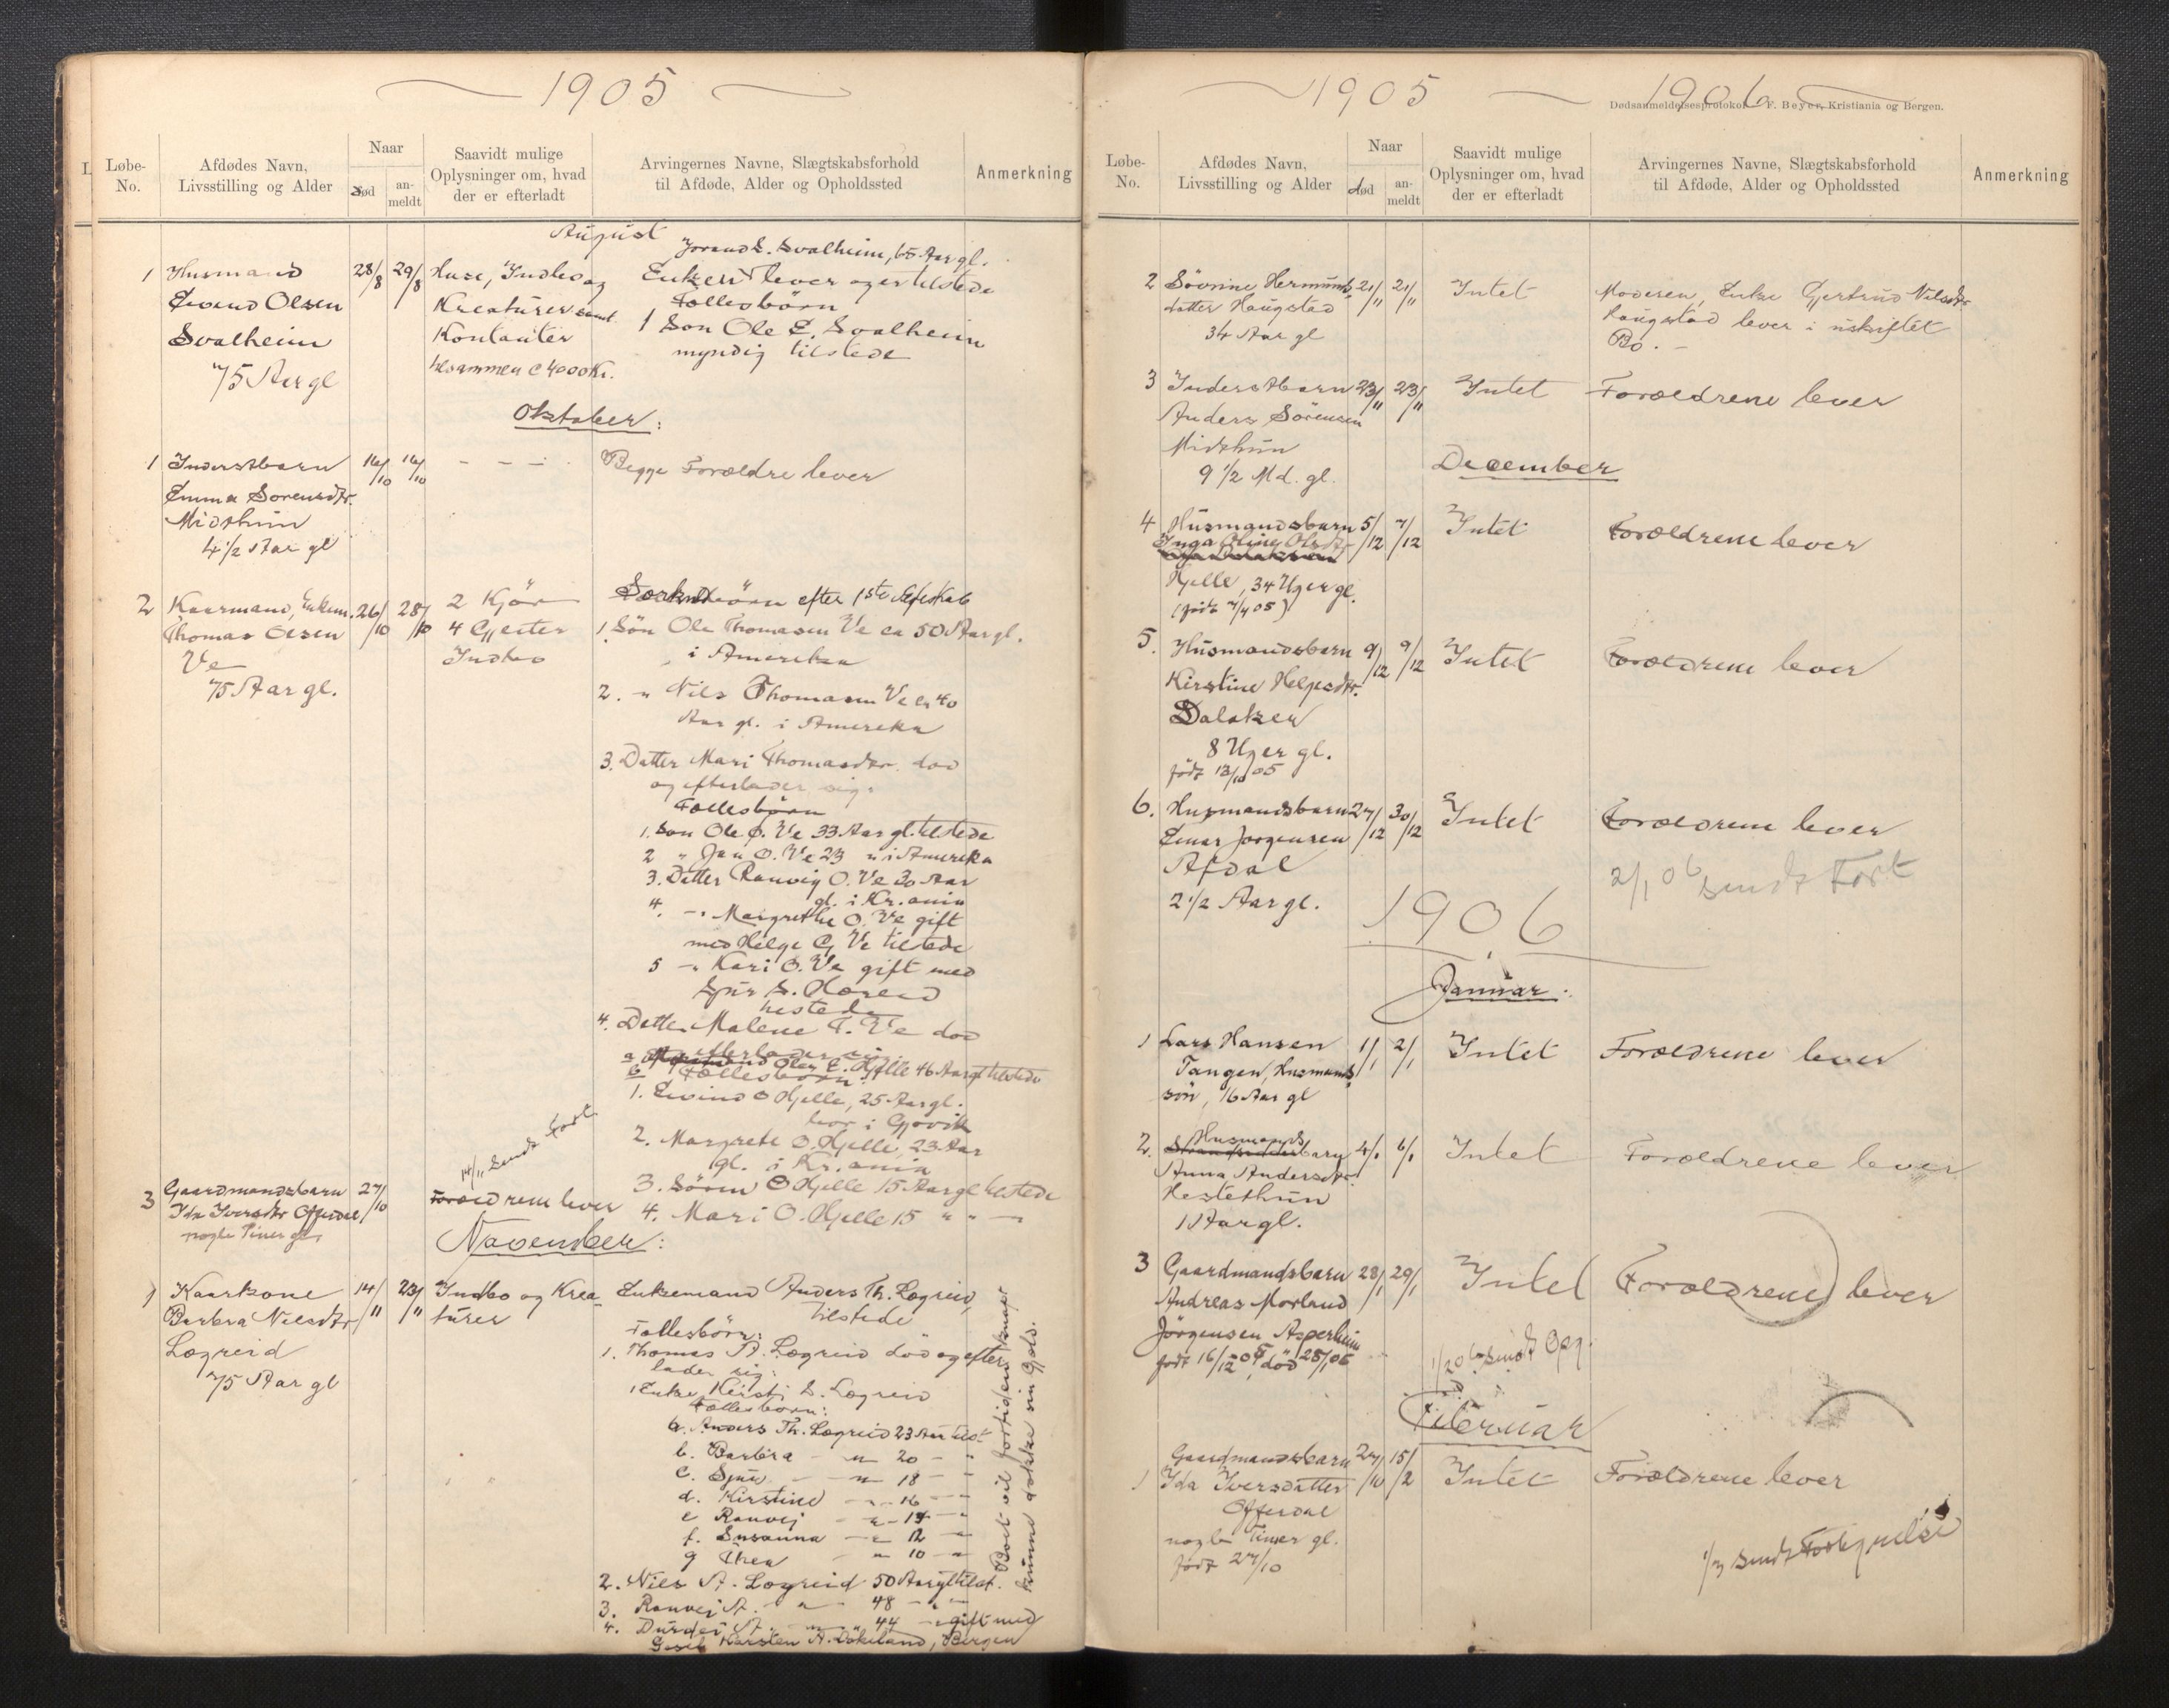 1905
Løbe-
No.
Afdødes Navn,
Livsstilling og Alder
Naar
død
an-
meldt
Saavidt mulige
Oplysninger om, hvad
der er efterladt
Arvingernes Navne, Slægtskabsforhold
til Afdøde, Alder og Opholdssted
Anmerkning
August
1 Husmand
Eivind Olsen
Svalheim
75 Aar gl
28/8 29/8
Huse, Indbo og
Kreaturer samt
Kontanter
tilsammen c 4000 Kr.
S. Svalheim, 65 Aar gl.
Enken lever og er tilstede
Fællesbörn
1 Sön Ole E. Svalheim
myndig tilstede
Oktober:
1 Inderstbarn
Emma Sorensdtr.
Midthun
4 1/2 Aar gl
16/10 16/10
- - -
Begge Forældre lever
2 Kaarmand, Enkem.
Thomas Olsen
Ve
75 Aar gl.
26/10 28/10
2 Kjör
4 Gjeiter
Indbo
Særkuldbörn efter 1ste Ægteskab
1. Sön Ole Thomasen Ve ca 50 Aar gl.
i Amerika
2. " Nils Thomasen Ve ca 40
Aar gl. i Amerika
3. Datter Mari Thomasdtr. död
og efterlader sig:
Fællesbörn
1. Sön Ole O. Ve 33 Aar gl. tilstede
2 " Jan O. Ve 23 " i Amerika
3. Datter Ranvig O. Ve 30 Aar
gl. i Kr.ania
4. -" Margrethe O. Ve gift
med Helge G. Ve tilstede
5 -" Kari O. Ve gift med
Sjur S. Hæreid
tilstede
4. Datter Malene T. Ve död
efterlader sig:
a Olav E. Hjelle 46 Aar gl tilstede
b Fællesbörn:
1. Eivind O Hjelle, 25 Aar gl.
bor i Gjøvik
2. Margrete O. Hjelle, 23 Aar
gl. i Kr.ania
3. Sören O Hjelle 15 Aar gl tilstede
4. Mari O. Hjelle 15 " " -
14/11 sendt Fort.
3 Gaardmandsbarn
Ida Iversdtr Offerdal
nogle Timer gl,
27/10
Forældrene lever
November:
1 Kaarkone
Barbra Nilsdtr
Lægreid
75 Aar gl
14/11 23/11
Indbo og Krea-
turer
Enkemand Anders Th. Lægreid,
tilstede
Fællesbörn:
1. Thomas A. Lægreid död og efter-
lader sig:
1 Enke Kristi S. Lægreid
Fællesbörn:
a. Anders Th. Lægreid 23 Aar tilst
b. Barbra - " 20 - "
c. Sjur - " 18 - "
d. Kirstine - " - 16 - "
e Ranvei - " - 14 - "
f. Susanna - " 12 - "
g Thea - " 10 - "
2. Nils A. Lægreid 50 Aar gl tilst.
3. Ranvei A. - " - 48 - " -
4. Durdei A. - " - 44 - gift med
Karsten A. Lökeland, Bergen
Boet vil fortiden knapt
kunne dække sin Gjæld.
1905
1906
Dødsanmeldelsesprotokol. F. Beyer, Kristiania og Bergen.
Løbe-
No.
Afdødes Navn,
Livsstilling og Alder
Naar
død
an-
meldt
Saavidt mulige
Oplysninger om, hvad
der er efterladt
Arvingernes Navne, Slægtskabsforhold
til Afdøde, Alder og Opholdssted
Anmerkning
2 Sövrine Hermunds-
datter Haugstad
34 Aar gl
21/11 21/11
Intet
Moderen, Enke Gjertrud Nilsdtr
Haugstad lever i uskiftet
Bo. -
3 Inderstbarn
Anders Sörensen
Midthun
9 1/2 Md. gl.
23/11 23/11
Intet
Forældrene lever
December
4 Husmandsbarn
Inga Oline Olsdtr
Hjelle, 34 Uger gl.
(född 7/4 05)
5/12 7/12
Intet
Forældrene lever
5. Husmandsbarn
Kirstine Helgesdtr.
Dalaker
8 Uger gl.
född 13/10 05
9/12 9/12
Intet
Forældrene lever
6. Husmandsbarn
Einar Jörgensen
Afdal
2 1/2 Aar gl.
27/12 30/12
Intet
Forældrene lever
2/1 06 sendt Fort
1906
Januar:
1 Lars Hansen
Tangen, Husmands-
sön, 16 Aar gl
1/1 2/1
Intet
Forældrene lever
2. Husmands
barn
Anna Andersdtr.
Hestethun
1 Aar gl.
4/1 6/1
Intet
Forældrene lever
3 Gaardmandsbarn
Andreas Morland
Jörgensen Asperheim
född 16/12 05, död 28/1 06
28/1 29/1
Intet
Forældrene lever
sendt Opg.
Februar
1 Gaardmandsbarn
Ida Iversdatter
Offerdal
nogle Timer gl.
född 27/10
27/10 15/2
Intet
Forældrene lever
1/3 sendt Fortegnelse